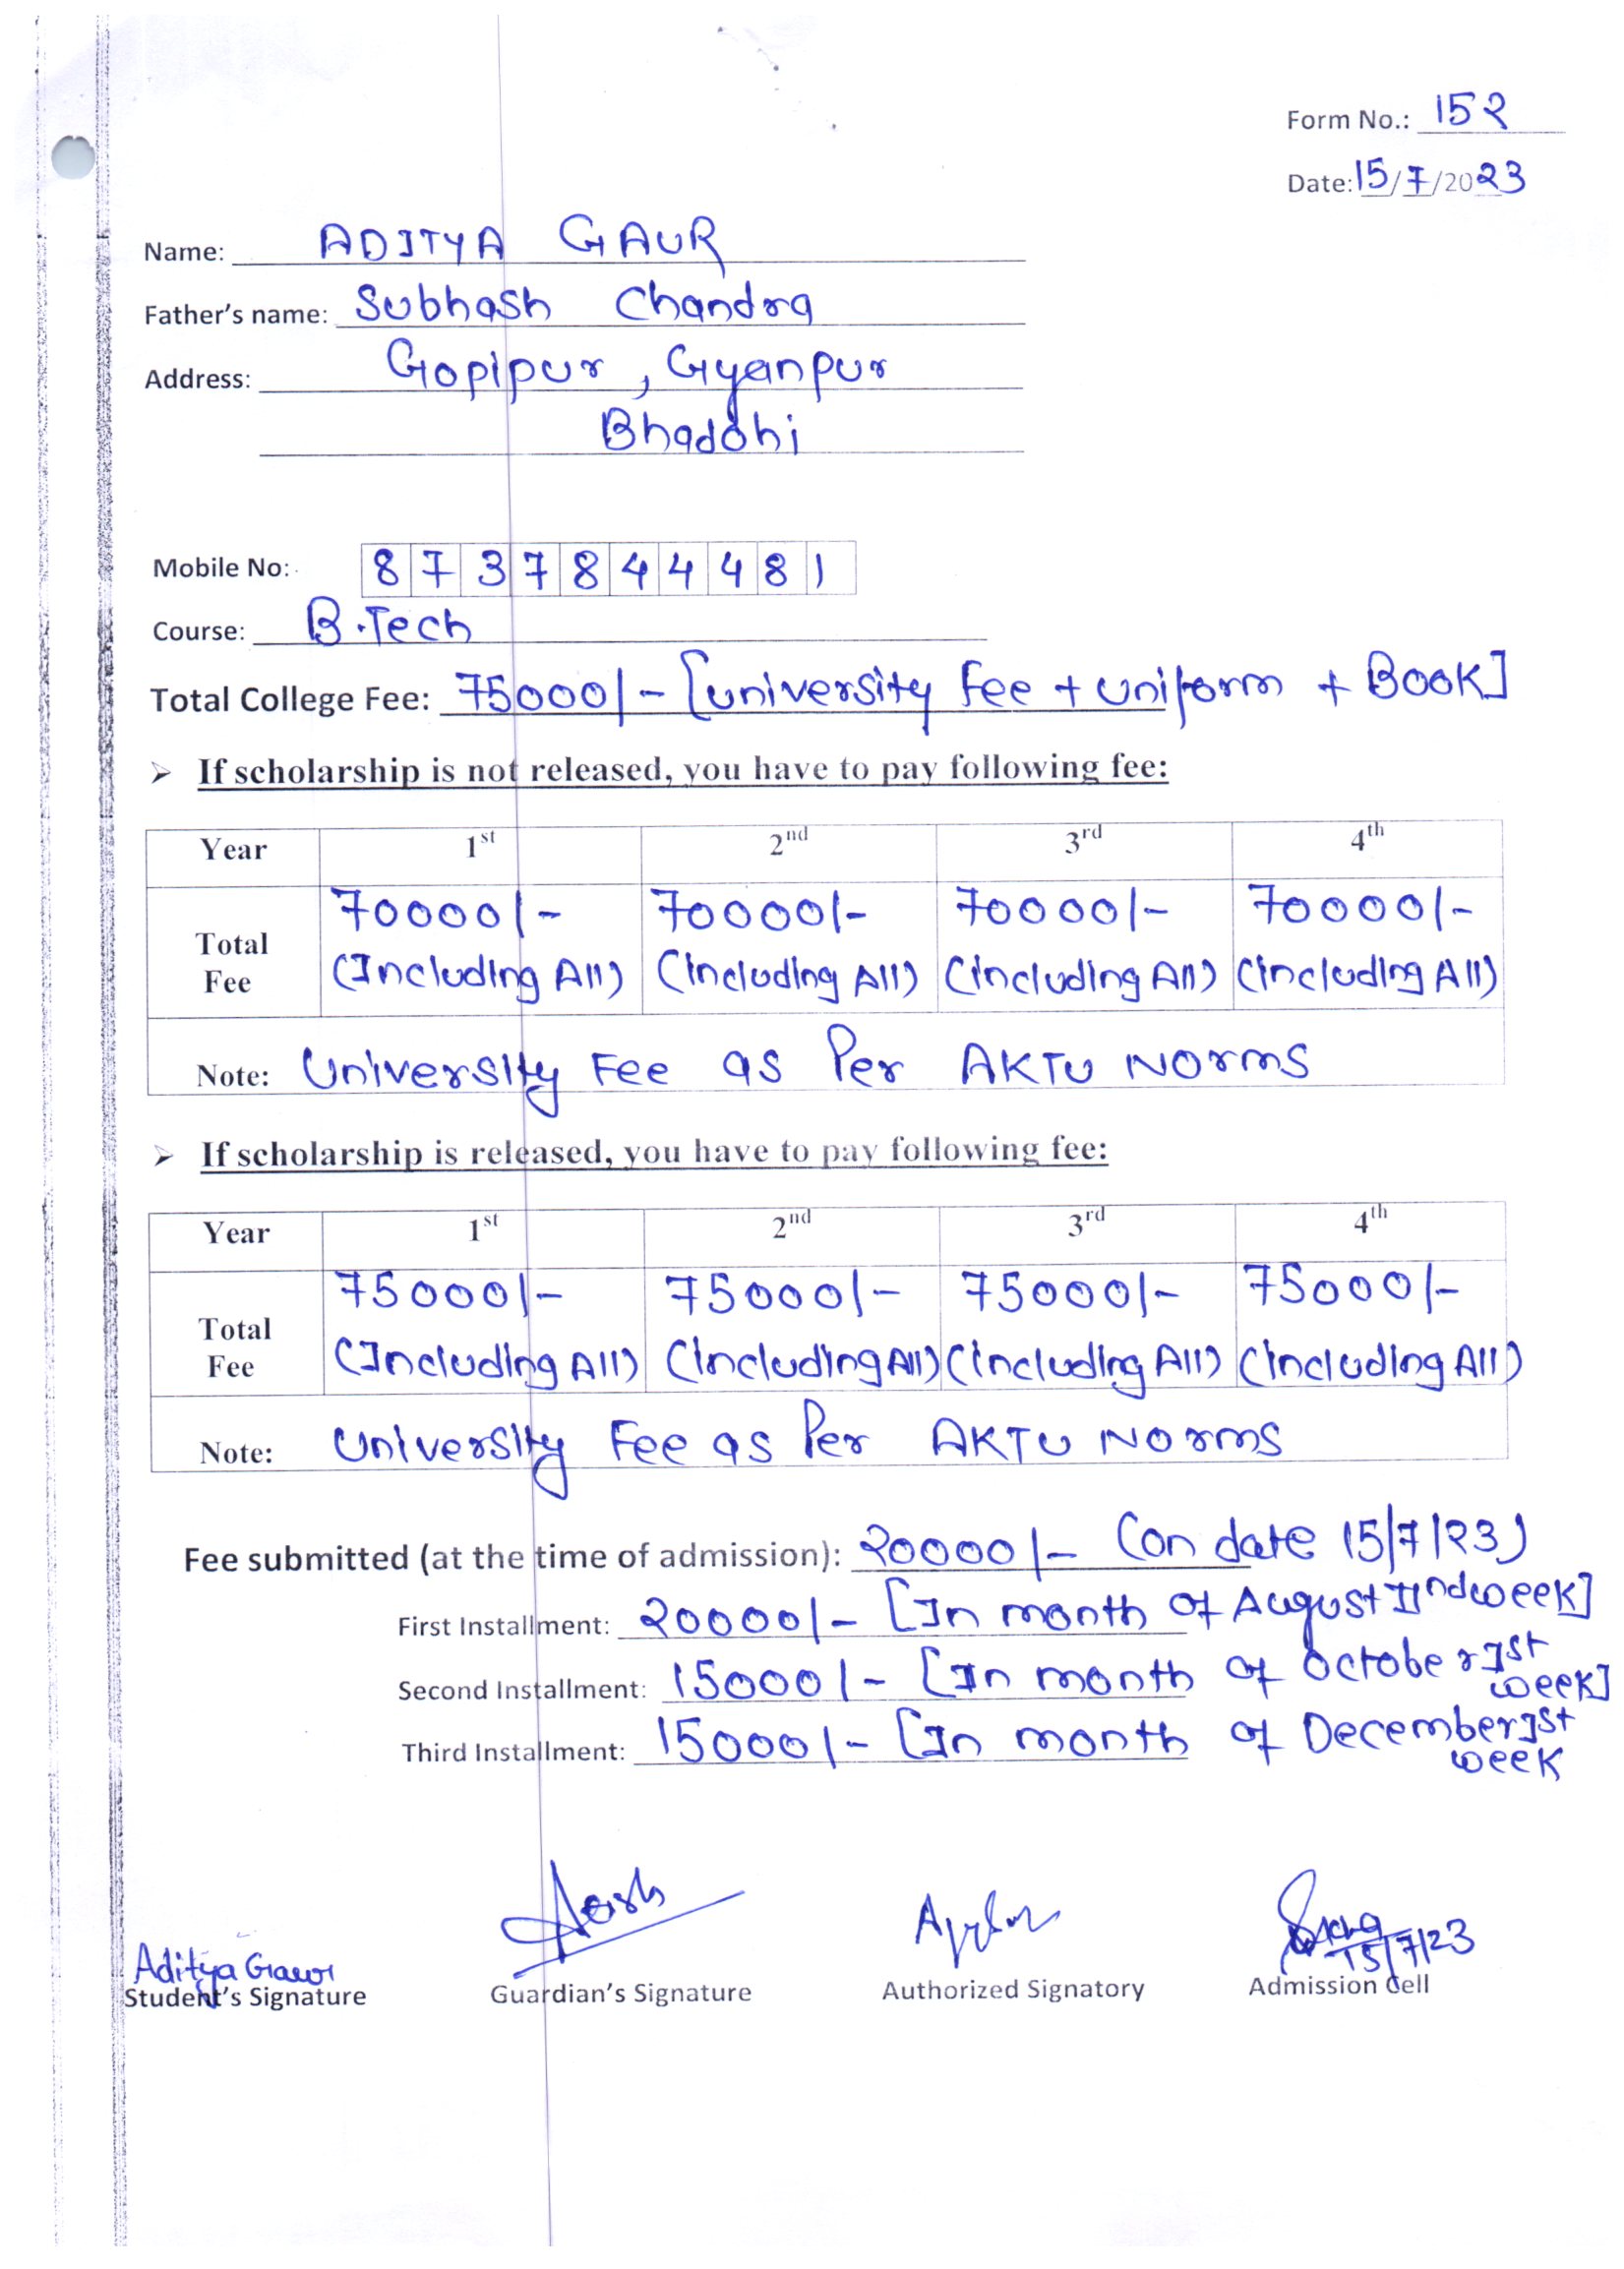 Form No.: 152
Date: 15/7/2023
Name: ADITYA GAUR
Father's name: Subhash Chandra
Address: Gopipur, Gyanpur
Bhadohi
Mobile No: 8737844481
Course: B.Tech
Total College Fee: 75000/- [University Fee + Uniform + Book]
➢ If scholarship is not released, you have to pay following fee:
Year 1st 2nd 3rd 4th
70000/- 70000/- 70000/- 70000/-
Total Fee (Including All) (Including All) (Including All) (Including All)
Note: University Fee as Per AKTU Norms
➢ If scholarship is released, you have to pay following fee:
Year 1st 2nd 3rd 4th
75000/- 75000/- 75000/- 75000/-
Total Fee (Including All) (Including All) (Including All) (Including All)
Note: University Fee as Per AKTU Norms
Fee submitted (at the time of admission): 20000/- (on date 15/7/23)
First Installment: 20000/- [In month of August IInd week]
Second Installment: 15000/- [In month of October Ist week]
Third Installment: 15000/- [In month of December Ist week
Aditya Gaur
15/7/23
Student's Signature Guardian's Signature Authorized Signatory Admission Cell